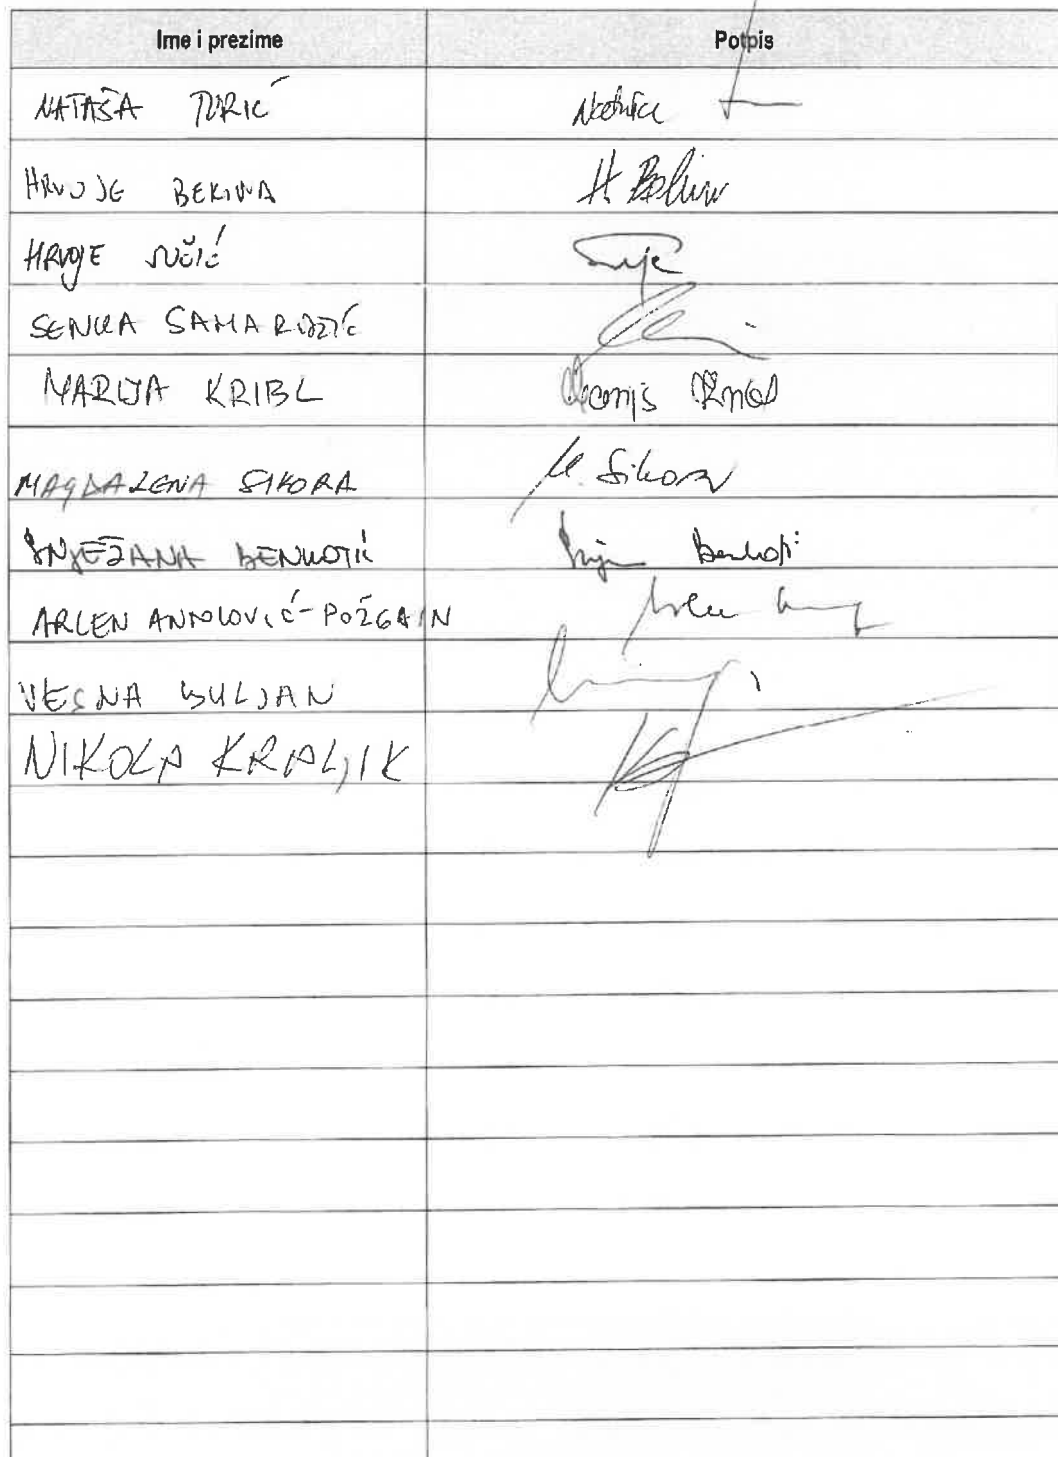 Ime i prezime Potpis
NATAŠA TURIĆ
HRVOJE BEKINA H. Bekina
HRVOJE SUČIĆ
SENKA SAMARDŽIĆ
MARIJA KRIBL
MAGDALENA SIKORA M. Sikora
SNJEŽANA BENKOTIĆ
ARLEN ANTOLOVIĆ-POŽGAIN
VESNA BULJAN
NIKOLA KRALJIK